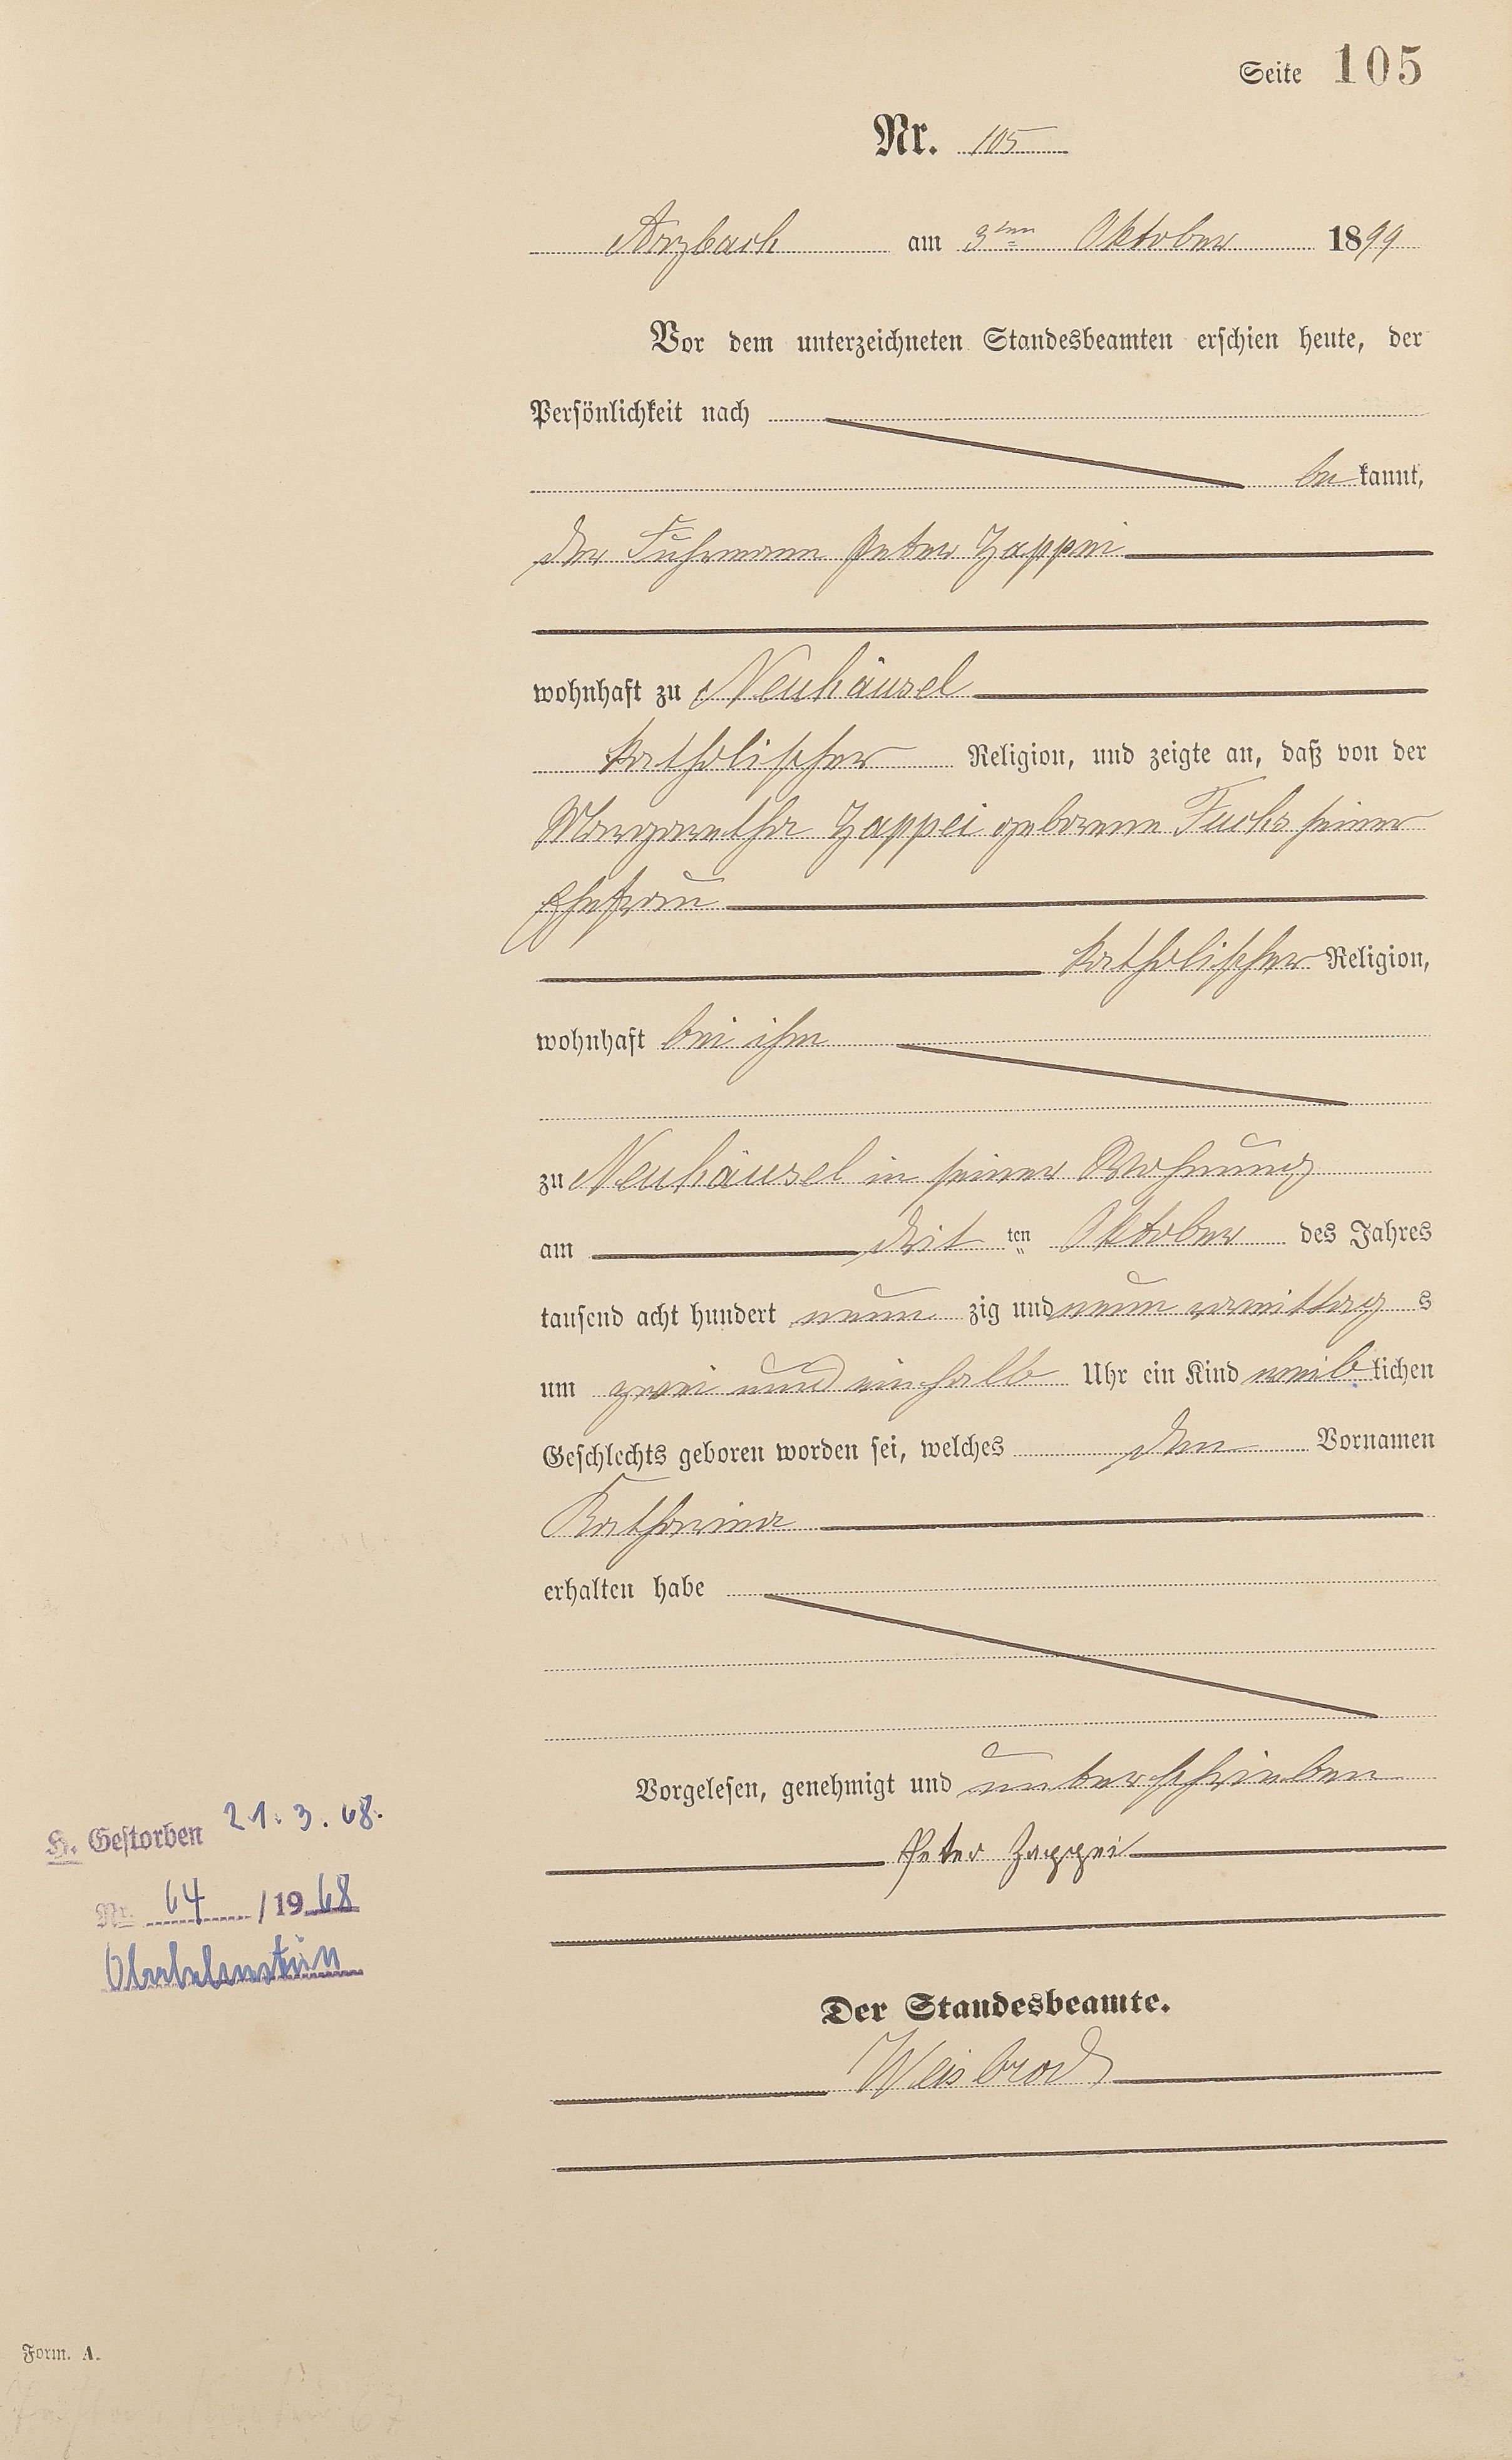 Seite 105
Nr. 105
Arzbach am 3ten Oktober 1899
Vor dem unterzeichneten Standesbeamten erschien heute, der
Persönlichkeit nach
be kannt,
der Fuhrmann Peter Zappei
wohnhaft zu Neuhäusel
katholischer Religion, und zeigte an, daß von der
Margaretha Zappei geborene Fuchs seiner
Ehefrau
katholischer Religion,
wohnhaft bei ihm
zu Neuhäusel in seiner Wohnung
am drit ten Oktober des Jahres
tausend acht hundert neun zig und neun vormittag s
um zwei und einhalb Uhr ein Kind weib lichen
Geschlechts geboren worden sei, welches den Vornamen
Katharina
erhalten habe
Vorgelesen, genehmigt und unterschrieben
Peter Zappei
Der Standesbeamte.
Weisbrod
H. Gestorben 21.3.68.
Nr. 64 /19 68
Oberlahnstein
Form. A.